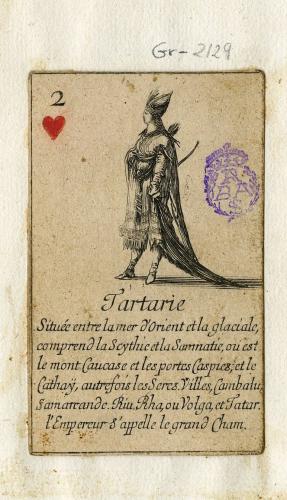 Gr-2129
2
Tartarie
Située entre la mer d'Orient et la glaciale,
comprend la Scythie et la Sarmatie, ou est
le mont Caucase et les portes Caspies, et le
Cathaÿ, autrefois les Seres. Villes, Cambalu,
Samarcande. Riu. Rha, ou Volga, et Tatar.
l'Empereur s'appelle le grand Cham.